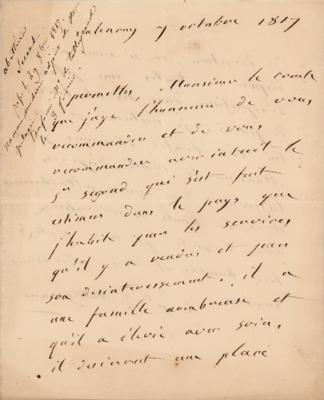 Valençay 7 octobre 1817
permettés, Monsieur le comte
que j'aye l'honneur de vous
recommander et de vous
recommander avec interest le
Sr Segond qui s'est fait
estimer dans le pays que
j'habite par les services
qu'il y a rendus et par
son desinteressement. il a
une famille nombreuse et
qu'il a élevée avec soin.
il desireroit une place